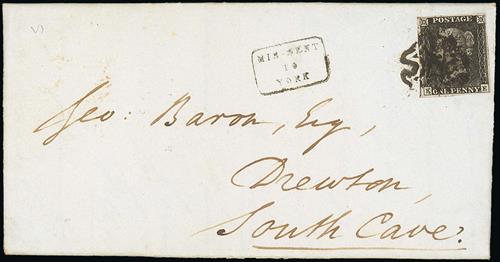 V)
MIS-SENT
TO
YORK
POSTAGE
ONE PENNY
Geo: Baron, Esq,
Drewton,
South Cave.